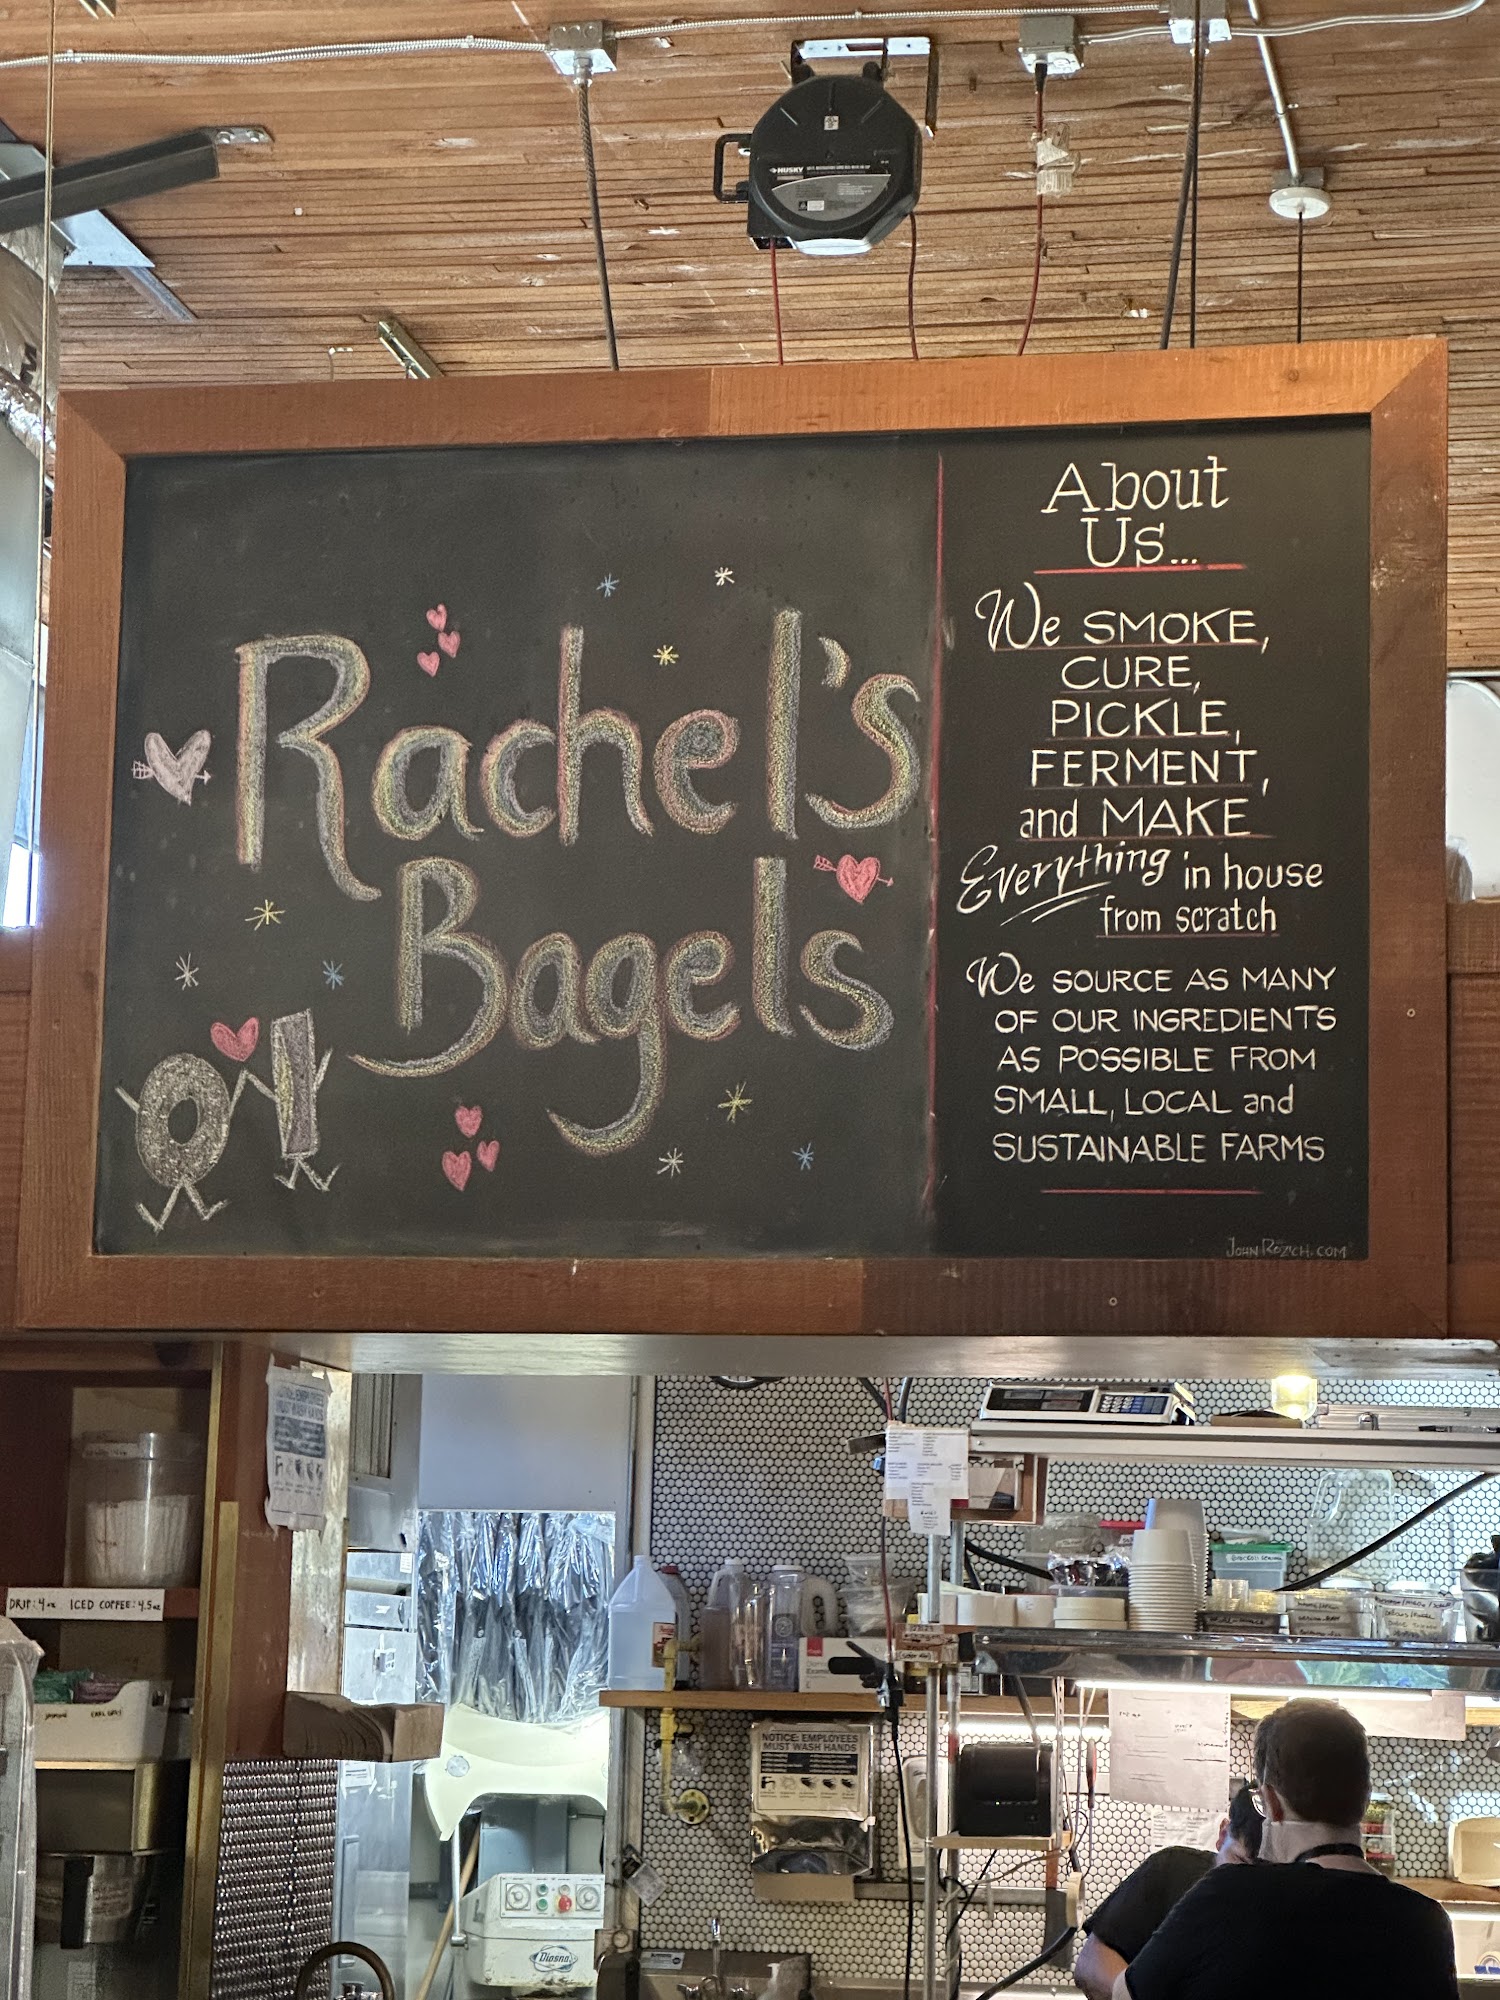 HUSKY
Rachel's
Bagels
About
Us...
We SMOKE,
CURE,
PICKLE,
FERMENT,
and MAKE
Everything in house
from scratch
We SOURCE AS MANY
OF OUR INGREDIENTS
AS POSSIBLE FROM
SMALL, LOCAL and
SUSTAINABLE FARMS
JOHN ROZICH.COM
MUST WASH HANDS
DRIP: 4 oz ICED COFFEE: 4.5 oz
EARL GREY
NOTICE: EMPLOYEES
MUST WASH HANDS
Diosna